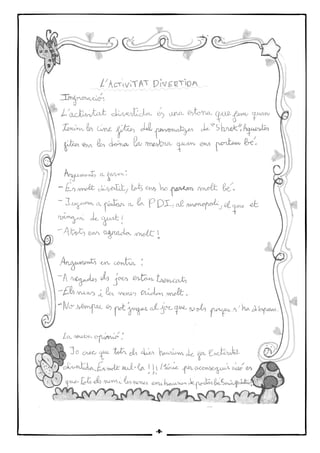 L'ACTIVITAT DIVERTIDA
Introducció:
L'activitat divertida és una estona que fem quan
tenim les cinc fites del personatges de "Shrek". Aquestes
fites ens les dona la mestra quan ens portem bé.
Arguments a favor:
- És molt divertit, tots ens ho passem molt bé.
- Juguem a pilotes a la PDI, al monopoli, el que et
vingui de gust!
- A tots ens agrada molt!
Arguments en contra:
- A vegades els jocs estan trencats
- Els nens i les nenes criden molt.
- No sempre es pot jugar al joc que vols perquè s'ha d'esperar.
La meva opinió:
Jo crec que tots els dies hauríem de fer l'activitat
divertida. És molt xul·la !!! per aconseguir això és
que tots els nens i les nenes ens hauríem de portar bé